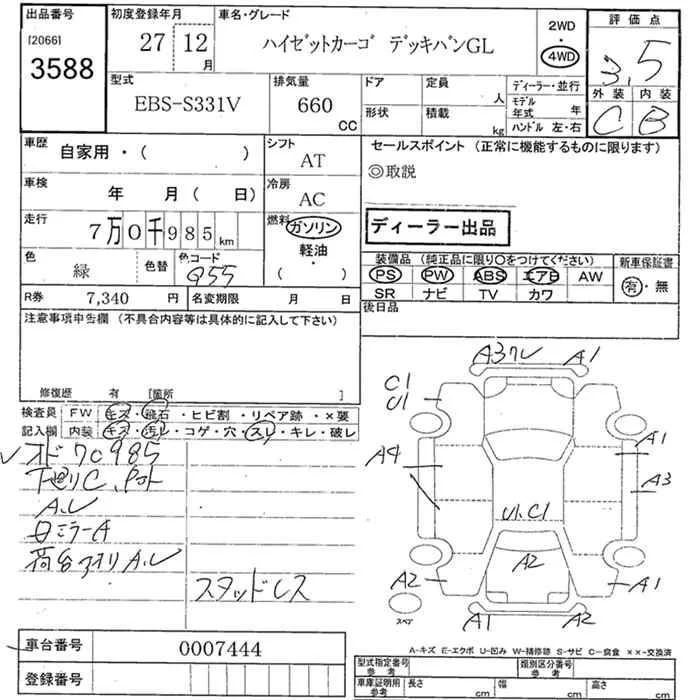 出品番号 初度登録年月 車名・グレード 2WD 評価点
[2066] 27 12月 ハイゼットカーゴ デッキバンGL ・ 3.5
3588 4WD
型式 排気量 ドア 定員 人 ディーラー・並行 外装 内装
EBS-S331V 660 CC 形状 積載 kg モデル年式 年 C B
ハンドル 左・右
車歴 自家用・( ) シフト AT セールスポイント (正常に機能するものに限ります)
◎取説
車検 年 月( 日) 冷房 AC
走行 7万0千985km 燃料 ガソリン・軽油・( ) ディーラー出品
色 緑 色替 色コード G55 装備品 (純正品に限り○をつけてください) 新車保証書
PS PW ABS エアB AW 有・無
R券 7,340円 名変期限 月 日 SR ナビ TV カワ
注意事項申告欄 (不具合内容等は具体的に記入して下さい) 後日品
修復歴 有 [箇所 ]
検査員 FW キズ・飛石・ヒビ割・リペア跡・×要
記入欄 内装 キズ・汚レ・コゲ・穴・スレ・キレ・破レ
オド70985
下廻りC、
A、U
ミラーA
荷台アオリA、U
スタッドレス
A3 A1
C1
U1
A4 A1
A3
U1、C1
A2
A2 A1
スペア
A1 A2
車台番号 0007444
登録番号
A-キズ E-エクボ U-凹み W-補修跡 S-サビ C-腐食 ××-交換済
型式指定番号 参考 類別区分番号 参考
車庫証明用 参考 長さ cm 幅 cm 高さ cm